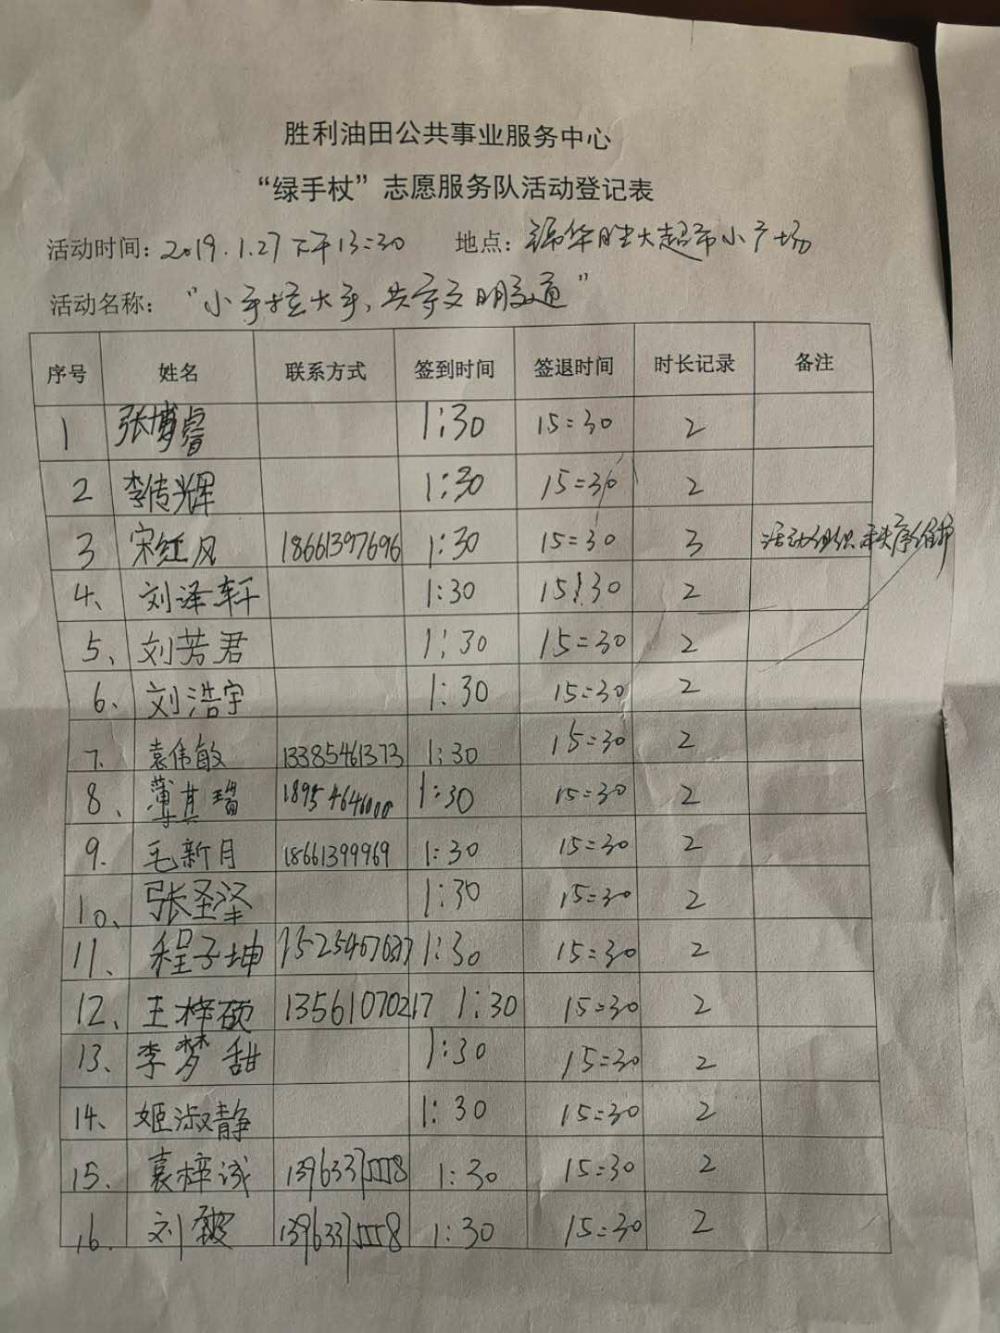 胜利油田公共事业服务中心
“绿手杖”志愿服务队活动登记表
活动时间：2019.1.27下午13:30 地点：锦华胜大超市小广场
活动名称：“小手拉大手，共守文明交通”
序号 姓名 联系方式 签到时间 签退时间 时长记录 备注
1 张博睿 1:30 15:30 2
2 李传辉 1:30 15:30 2
3 宋红风 18661397696 1:30 15:30 3 活动组织 秩序维护
4、 刘泽轩 1:30 15:30 2
5、 刘芳君 1:30 15:30 2
6、 刘浩宇 1:30 15:30 2
7、 袁伟敏 13385461373 1:30 15:30 2
8、 薄其瑞 1:30 15:30 2
9. 毛新月 18661399969 1:30 15:30 2
10、 张圣泽 1:30 15:30 2
11、 程子坤 1:30 15:30 2
12、 王梓硕 13561070217 1:30 15:30 2
13、 李梦甜 1:30 15:30 2
14、 姬淑静 1:30 15:30 2
15. 袁梓诚 1:30 15:30 2
16. 刘 1:30 15:30 2